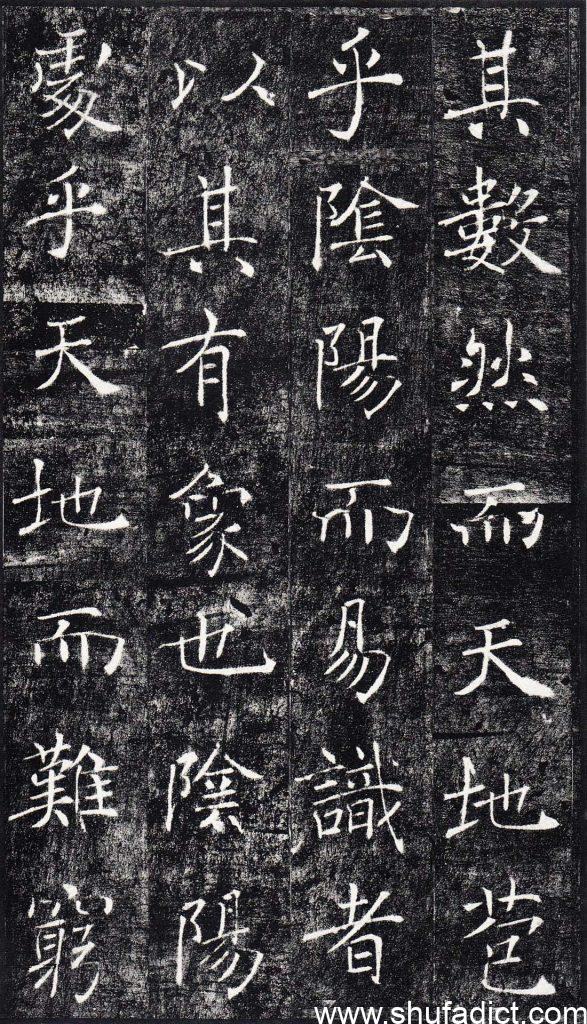 其數然而天地苞
乎陰陽而易識者
以其有象也陰陽
處乎天地而難窮
www.shufadict.com